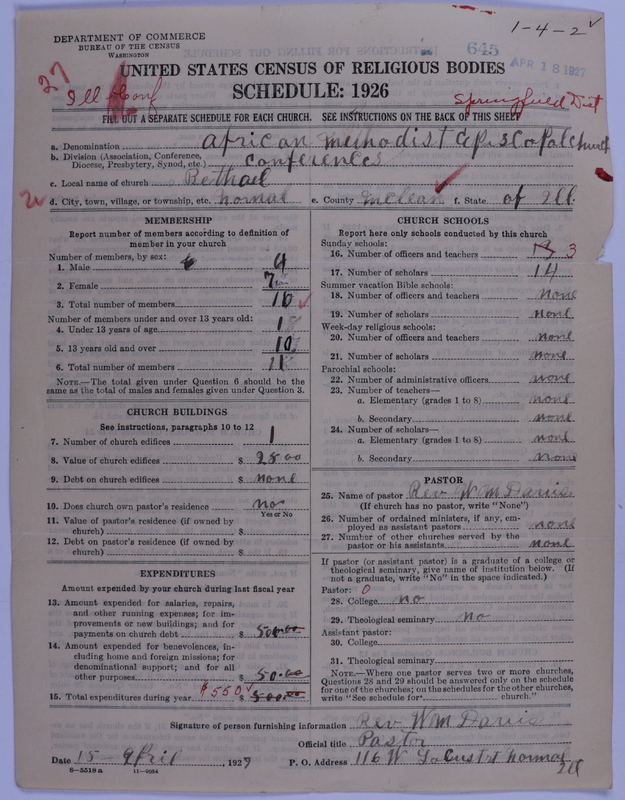 DEPARTMENT OF COMMERCE
BUREAU OF THE CENSUS
WASHINGTON
1-4-2
645
APR 18 1927
27
Ill Conf
UNITED STATES CENSUS OF RELIGIOUS BODIES
SCHEDULE: 1926
Springfield Dist
FILL OUT A SEPARATE SCHEDULE FOR EACH CHURCH. SEE INSTRUCTIONS ON THE BACK OF THIS SHEET
a. Denomination African Methodist Episcopal Church
b. Division (Association, Conference, Diocese, Presbytery, Synod, etc.) Conferences
c. Local name of church Bethael
d. City, town, village, or township, etc. Normal e. County McLean f. State of Ill.
MEMBERSHIP
Report number of members according to definition of
member in your church
Number of members, by sex:
1. Male 4
2. Female 7
3. Total number of members 10
Number of members under and over 13 years old:
4. Under 13 years of age 1
5. 13 years old and over 10
6. Total number of members 11
NOTE.—The total given under Question 6 should be the
same as the total of males and females given under Question 3.
CHURCH BUILDINGS
See instructions, paragraphs 10 to 12
7. Number of church edifices 1
8. Value of church edifices $ 2800
9. Debt on church edifices $ none
10. Does church own pastor's residence no
Yes or No
11. Value of pastor's residence (if owned by
church) $
12. Debt on pastor's residence (if owned by
church) $
EXPENDITURES
Amount expended by your church during last fiscal year
13. Amount expended for salaries, repairs,
and other running expenses; for im-
provements or new buildings; and for
payments on church debt $ 500.00
14. Amount expended for benevolences, in-
cluding home and foreign missions; for
denominational support; and for all
other purposes $ 50.00
15. Total expenditures during year $550 $ 500.00
CHURCH SCHOOLS
Report here only schools conducted by this church
Sunday schools:
16. Number of officers and teachers 3
17. Number of scholars 14
Summer vacation Bible schools:
18. Number of officers and teachers none
19. Number of scholars none
Week-day religious schools:
20. Number of officers and teachers none
21. Number of scholars none
Parochial schools:
22. Number of administrative officers none
23. Number of teachers—
a. Elementary (grades 1 to 8) none
b. Secondary none
24. Number of scholars—
a. Elementary (grades 1 to 8) none
b. Secondary none
PASTOR
25. Name of pastor Rev WM Davis
(If church has no pastor, write "None")
26. Number of ordained ministers, if any, em-
ployed as assistant pastors none
27. Number of other churches served by the
pastor or his assistants none
If pastor (or assistant pastor) is a graduate of a college or
theological seminary, give name of institution below. (If
not a graduate, write "No" in the space indicated.)
Pastor: 0
28. College no
29. Theological seminary No
Assistant pastor:
30. College
31. Theological seminary
NOTE.—Where one pastor serves two or more churches,
Questions 28 and 29 should be answered only on the schedule
for one of the churches; on the schedules for the other churches,
write "See schedule for church."
Signature of person furnishing information Rev WM Davis
Official title Pastor
Date 15 - April, 1927 P. O. Address 116 W Locust st Normal Ill
6-5518 a 11-9054